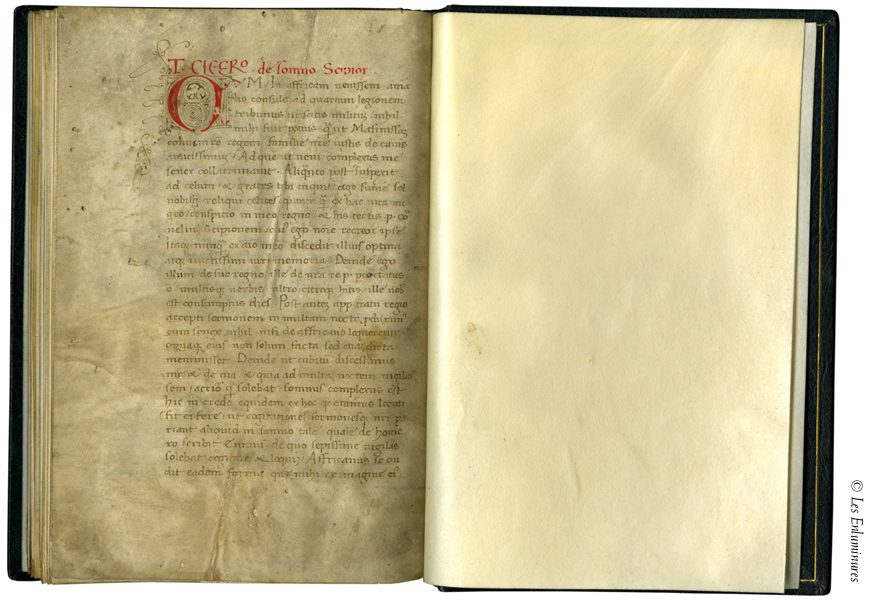 T. CICERO de somno Scipior
CUM In affricam venissem ama
lio consule ad quartam legionem
tribunus ut scitis militum nihil
mihi fuit potius q̃ ut Masinissā
regem familie nr̃e iustis de causis
amicissimum. Ad quē ut veni complexus me
senex collacrimavit. Aliq̃nto post suspexit
ad celum & grates tibi inquit ago sum̃e sol
vobisq; reliqui celites q ante q̃ ex hac vita mi
gro conspicio in meo regno & his tectis p. cor̃
nelium Scipionem cui' ego noīe recreor ipso
Itaq; nunq̃ ex aīo meo discedit illius optimi
atq; invictissimi viri memoria. Deinde ego
illum de suo regno ille de nr̃a re p. pcōtatus
ē multisq; verbis ultro citroq; hitis ille nob
est consumptus dies. Post autē apparatu regio
accepti sermonem in multam noctē pduximꝰ
cum senex nihil nisi de affricano loqueretur
omniaq; eius non solum facta sed etiā dicta
meminisset. Deinde ut cubitū discessimus
me & de via & qui ad multā noctem vigilas
sem arctior q̃ solebat somnus complexus est
hic m credo equidem ex hoc q eramus locuti
fit ei fere ut cogitationes sermonesq; nr̃i pa
riant aliquid in somno tale quale de home
ro scribit Ennius de quo sepissime vigilās
solebat cogitare & loqui. Affricanus se os̃
dit eadem forma que mihi ex imagine eiꝰ
© Les Enluminures